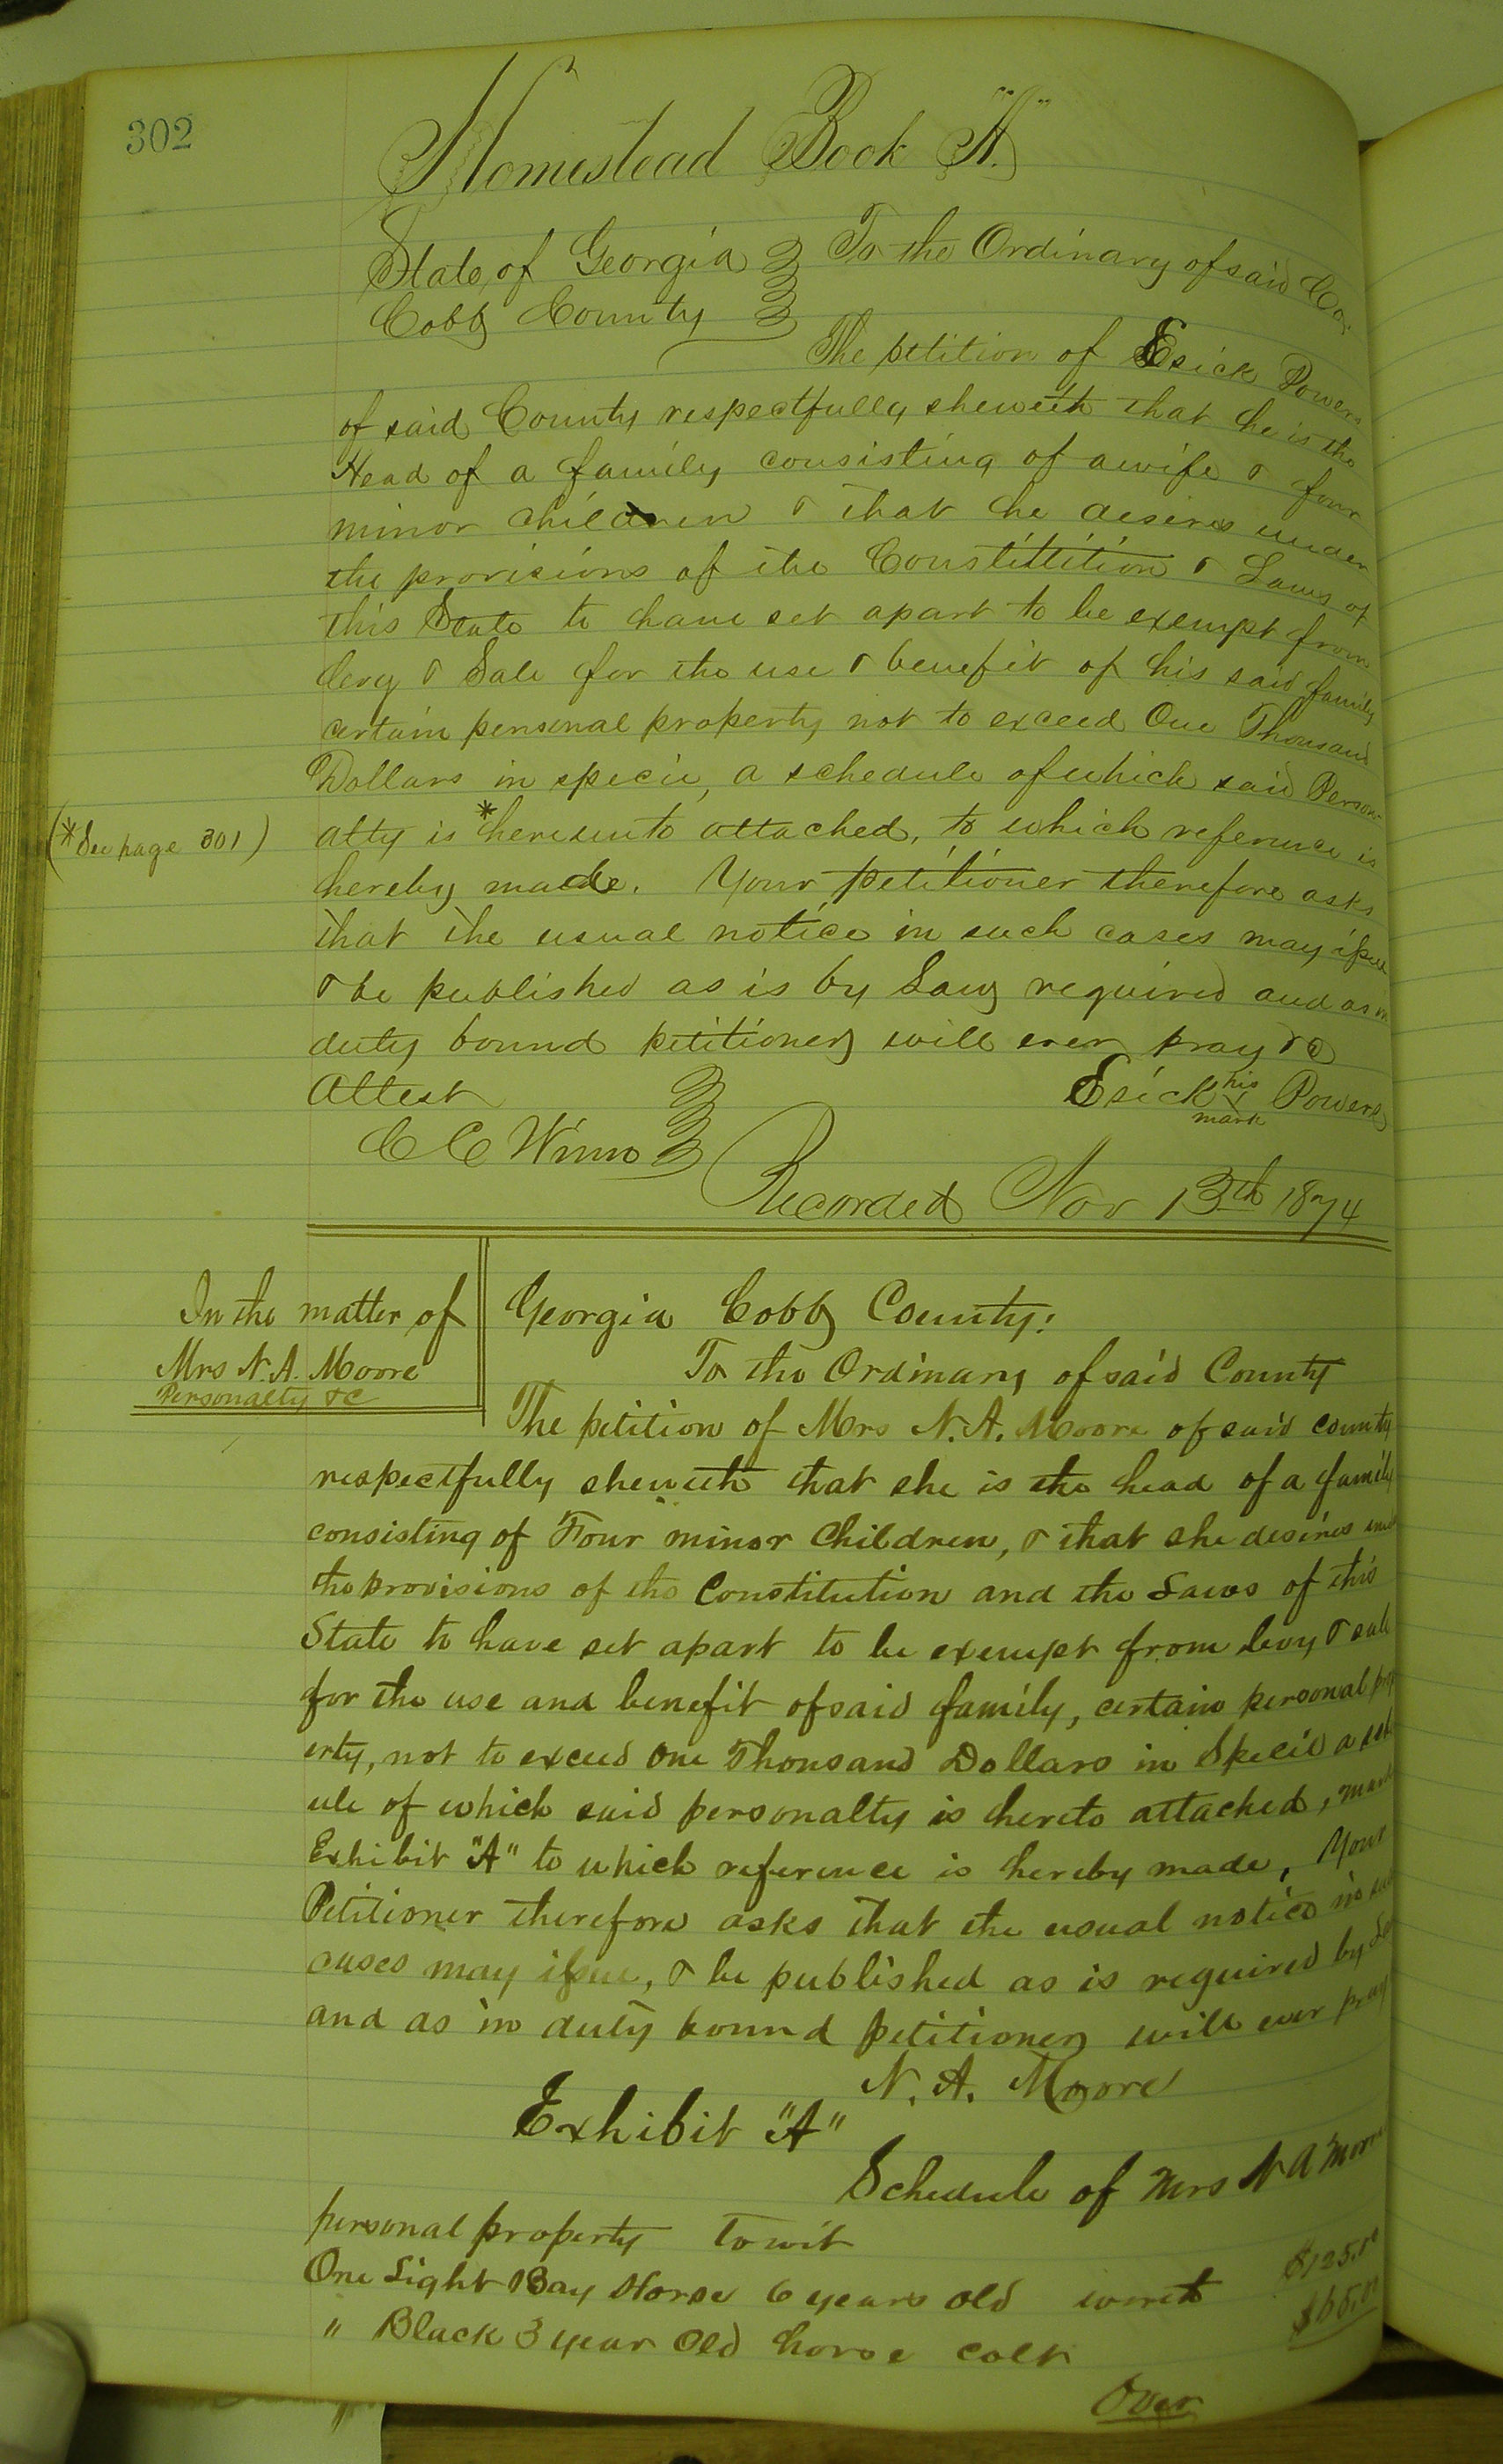 302
Homestead Book "A"
State of Georgia To the Ordinary of said Co
Cobb County
The petition of Esick Powers
of said County respectfully sheweth that he is the
Head of a family consisting of a wife & four
minor children & that he desires under
the provisions of the Constittition & Laws of
this State to have set apart to be exempt from
levy & Sale for the use & benefit of his said family
certain personal property not to exceed One Thousand
Dollars in specie, a schedule of which said Person-
(*See page 301)
alty is *hereunto attached, to which reference is
hereby made. Your petitioner therefore asks
that the usual notice in such cases may issue
& be published as is by Law required and as in
duty bound petitioner will ever pray &c
Attest Esick his x mark Powers
C C Winn
Recorded Nov 13th 1874
In the matter of
Mrs N. A. Moore
Personalty &c
Georgia Cobb County:
To the Ordinary of said County
The petition of Mrs N. A. Moore of said county
respectfully sheweth that she is the head of a family
consisting of Four minor Children, & that she desires
the provisions of the Constitution and the Laws of this
State to have set apart to be exempt from levy & sale
for the use and benefit of said family, certain personal prop
erty, not to exceed One Thousand Dollars in Specie a
ule of which said personalty is hereto attached,
Exhibit "A" to which reference is hereby made, Your
Petitioner therefore asks that the usual notice in
cases may issue, & be published as is required by
and as in duty bound petitioner will ever pray
N. A. Moore
Exhibit "A"
Schedule of Mrs N A Moore
personal property To wit
One Light Bay Horse 6 years old worth $125.00
" Black 3 year Old horse colt
Over